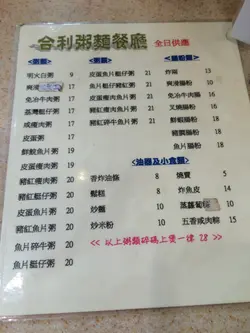 合利粥麵餐廳 全日供應
粥類
明火白粥 9
爽滑
免治牛肉粥 17
荔灣艇仔粥 17
咸瘦肉粥 17
皮蛋粥
鮮鯇魚片粥 19
皮蛋瘦肉粥 19
豬紅瘦肉粥 20
皮蛋魚片粥 20
豬紅魚片粥 20
魚片碎牛粥 20
魚片艇仔粥 20
粥類
皮蛋魚片艇仔粥 21
魚片艇仔豬紅粥 21
豬紅皮蛋魚片粥 21
豬紅瘦肉魚片粥 21
豬紅碎牛魚片粥 21
腸粉類
炸兩 18
爽滑腸粉 13
免治牛肉腸 16
叉燒腸粉 16
鮮蝦腸粉 18
豬膶腸粉 18
魚片腸粉 18
油器及小食類
香炸油條 8
鬆糕 8
炒麵 10
炒米粉 10
燒賣 8
炸魚皮 14
蒸蘿蔔 10
五香咸肉糭 15
<< 以上粥類碎碼上煲一律 28 >>